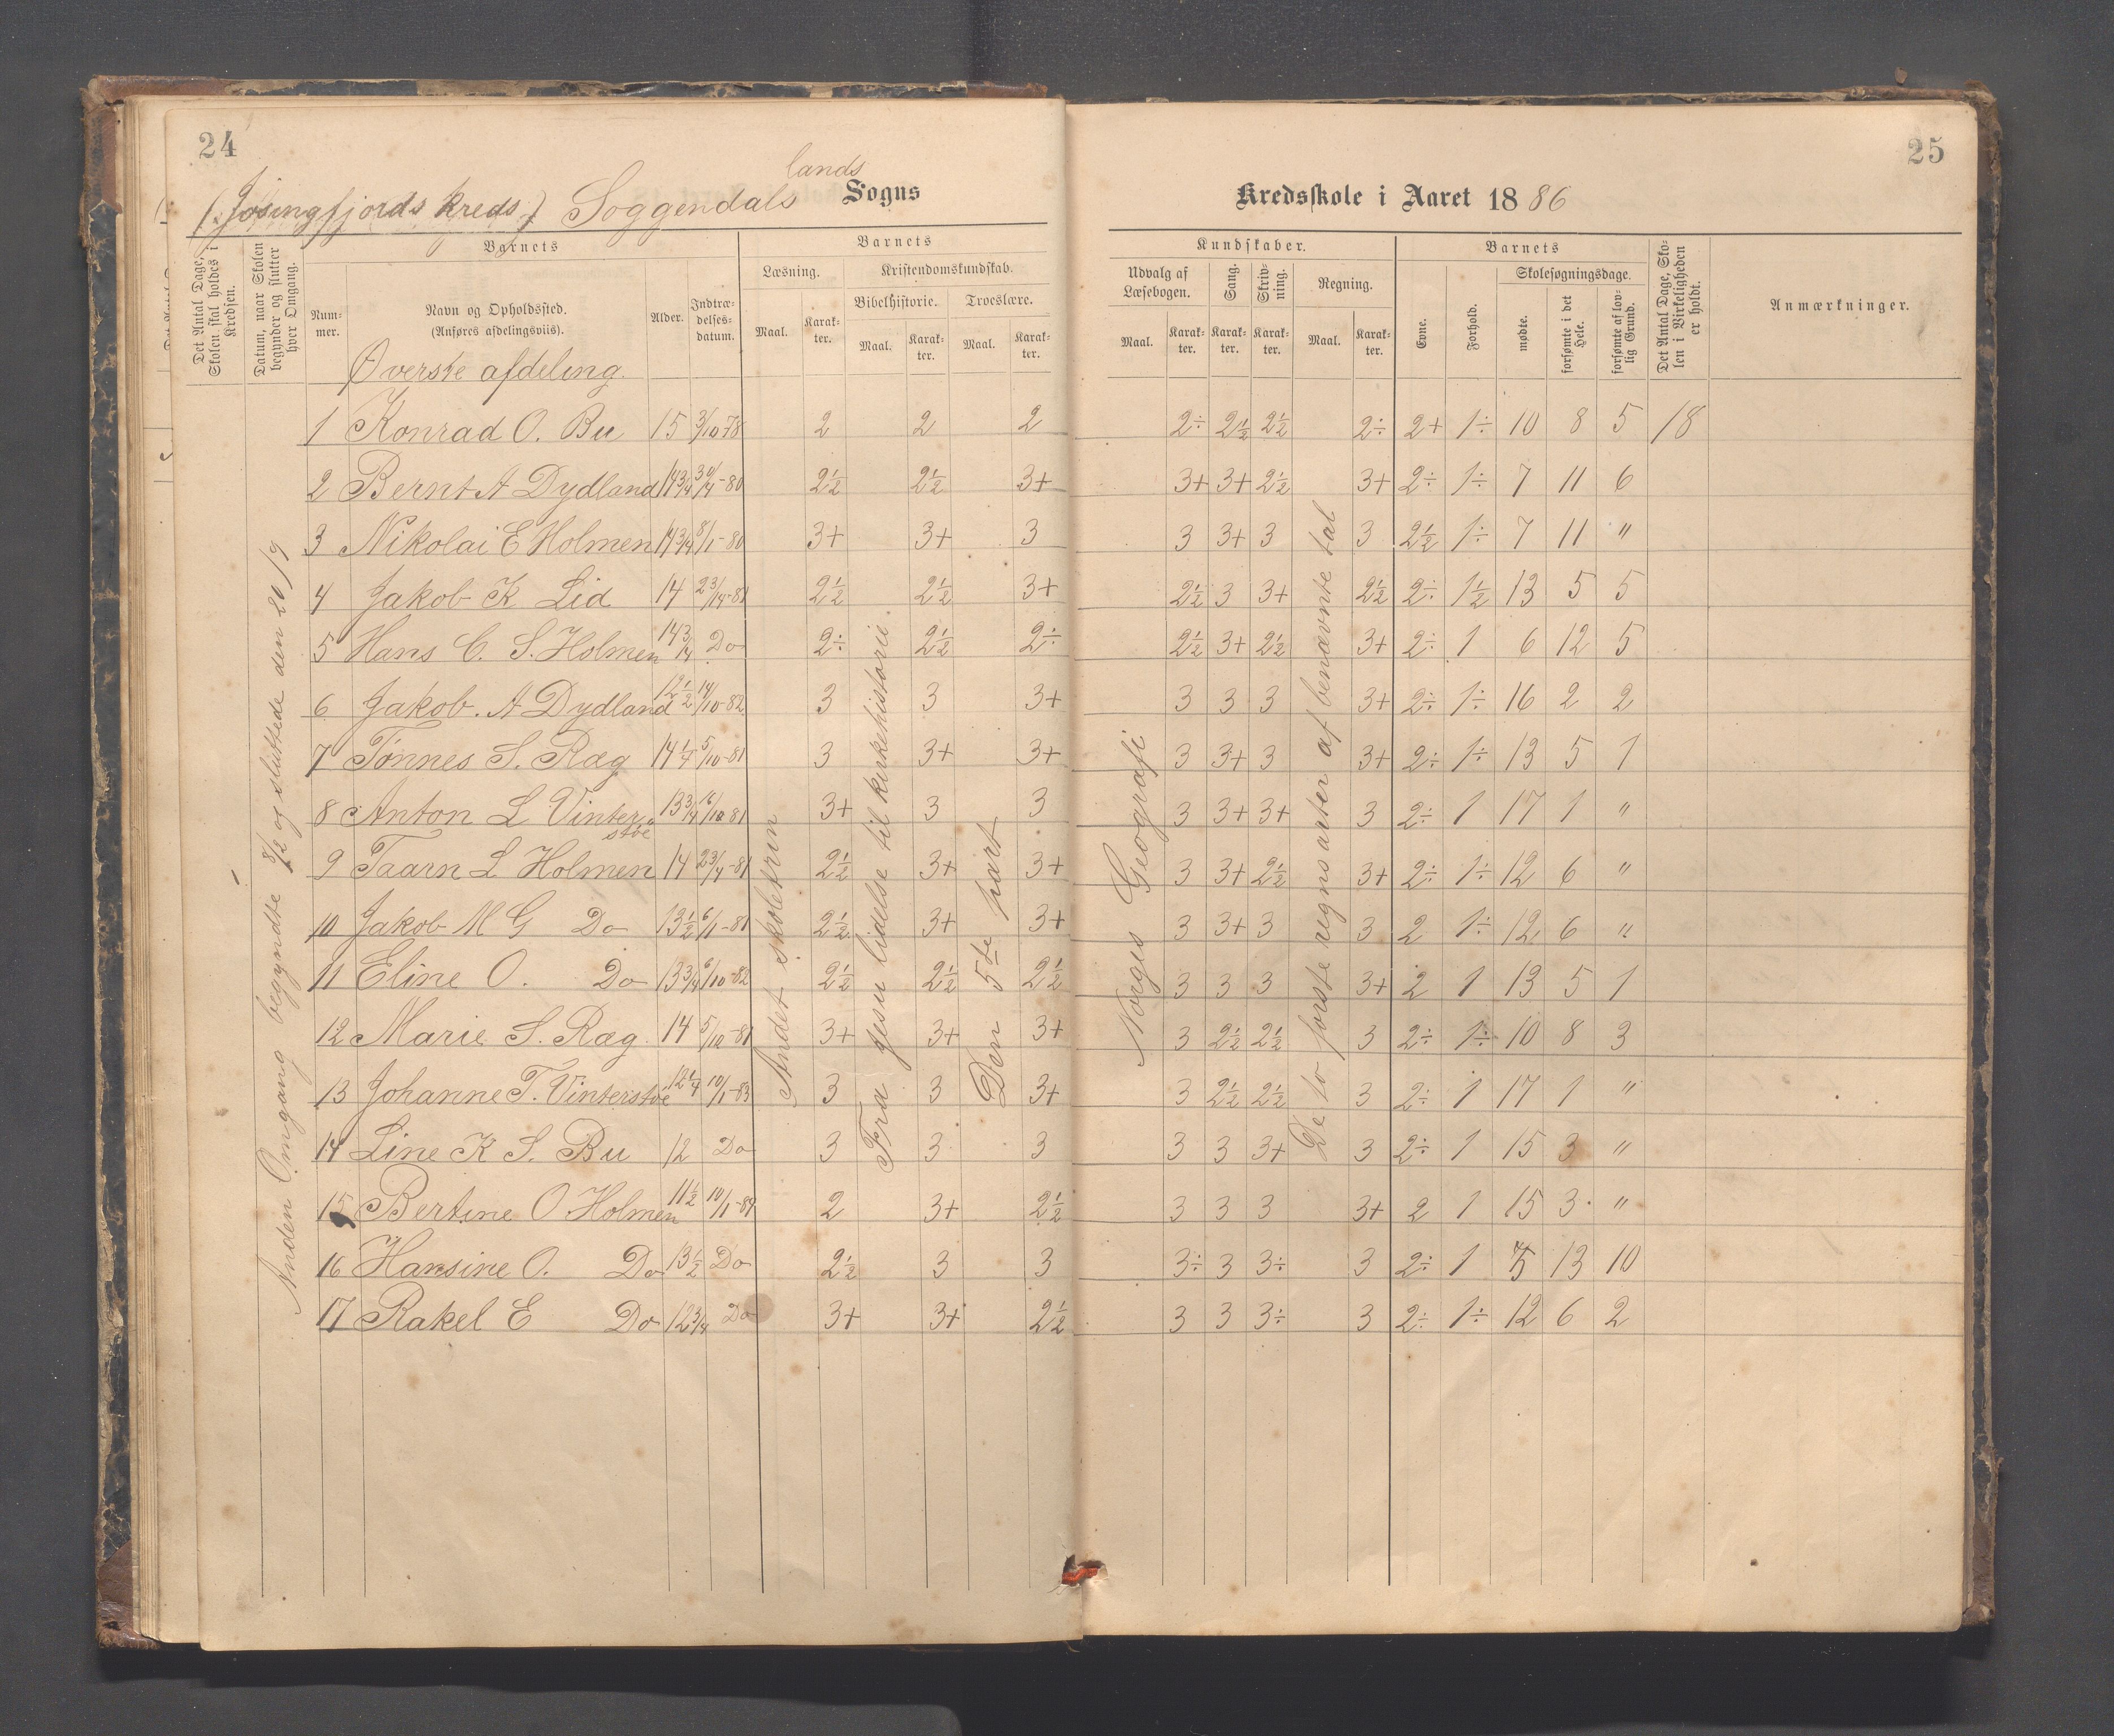 24
25
lands
(Jøsingfjords kreds) Soggendals Sogns
Kredsskole i Aaret 1886
Det Antal Dage, Skolen skal holdes i Kredsen.
Datum, naar Skolen begynder og slutter hver Omgang.
Barnets
Nummer.
Navn og Opholdssted.
(Anføres afdelingsviis).
Alder.
Indtrædelsesdatum.
Barnets
Læsning.
Maal. Karakter.
Kristendomskundskab.
Bibelhistorie. Troeslære.
Maal. Karakter. Maal. Karakter.
Kundskaber.
Udvalg af Læsebogen.
Maal. Karakter.
Sang. Karakter.
Skrivning. Karakter.
Regning.
Maal. Karakter.
Barnets
Evne.
Forhold.
Skolesøgningsdage.
mødte.
forsømte i det Hele.
forsømte af lovlig Grund.
Det Antal Dage, Skolen i Virkeligheden er holdt.
Anmærkninger.
Øverste afdeling.
1 Konrad O. Bu 15 3/10 78 2 2 2 2÷ 2½ 2½ 2÷ 2+ 1÷ 10 8 5 18
2 Bernt A Dydland 14 3/4 30/4-80 2½ 2½ 3+ 3+ 3+ 2½ 3+ 2÷ 1÷ 7 11 6
3 Nikolai E Holmen 14 3/4 8/1-80 3+ 3+ 3 3 3+ 3 3 2½ 1÷ 7 11 "
4 Jakob K Lid 14 23/4-81 2½ 2½ 3+ 2½ 3 3+ 2½ 2÷ 1½ 13 5 5
5 Hans C. S. Holmen 14 3/4 Do 2÷ 2½ 2÷ 2½ 3+ 2½ 3+ 2÷ 1 6 12 5
6 Jakob. A Dydland 12½ 14/10-82 3 3 3+ 3 3 3 3+ 2÷ 1÷ 16 2 2
7 Tønnes S. Ræg 14¼ 5/10-81 3 3+ 3+ 3 3+ 3 3+ 2÷ 1÷ 13 5 1
8 Anton L Vinterstøe 13 3/4 16/10 81 3+ 3 3 3 3+ 3+ 3 2÷ 1 17 1 "
9 Taarn L Holmen 14 23/4-81 2½ 3+ 3+ 3 3+ 2½ 3+ 2÷ 1÷ 12 6 "
10 Jakob M G Do 13½ 6/1-81 2½ 3+ 3+ 3 3+ 3 3 2 1÷ 12 6 "
11 Eline O. Do 13 3/4 6/10-82 2½ 2½ 2½ 3 3 3 3+ 2 1 13 5 1
12 Marie S. Ræg. 14 5/10-81 3+ 3+ 3+ 3 2½ 2½ 3 2÷ 1÷ 10 8 3
13 Johanne T. Vinterstøe 12¼ 10/1-83 3 3 3+ 3 2½ 2½ 3 2÷ 1 17 1 "
14 Line K S. Bu 12 Do 3 3 3 3 3 3+ 3 2÷ 1 15 3 "
15 Bertine O Holmen 11½ 10/1-84 2 3+ 2½ 3 3 3 3+ 2 1 15 3 "
16 Hansine O. Do 13½ Do 2½ 3 3 3÷ 3 3÷ 3 2÷ 1 5 13 10
17 Rakel E Do 12 3/4 Do 3+ 3+ 2½ 3 3 3÷ 3 2÷ 1÷ 12 6 2
Anden Omgang begyndte 8/2 og sluttede den 20/9
Andet skoletrin
Fra Jesu lidelse til kirkehistorie
Den 5te part
Norges Geografi
De to første regnsarter af benævnte tal